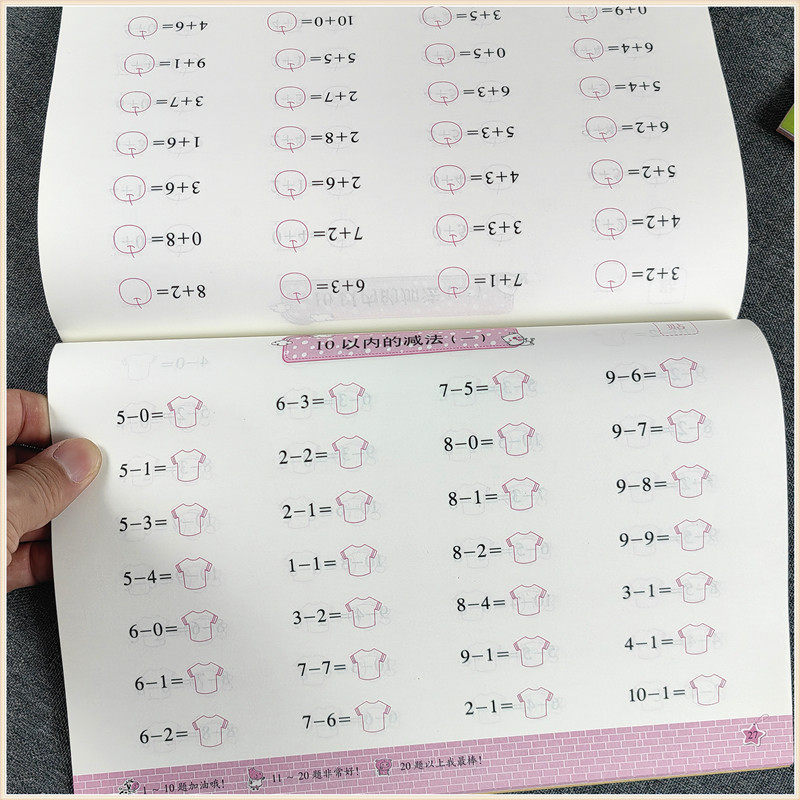 3+2= 7+1= 6+3= 8+2=
4+2= 3+3= 7+2= 0+8=
5+2= 4+3= 2+6= 3+6=
6+2= 5+3= 2+8= 1+6=
5+4= 6+3= 2+7= 3+7=
6+4= 0+5= 5+5= 9+1=
0+9= 3+5= 10+0= 4+6=
10以内的减法(一)
5−0= 6−3= 7−5= 9−6=
5−1= 2−2= 8−0= 9−7=
5−3= 2−1= 8−1= 9−8=
5−4= 1−1= 8−2= 9−9=
6−0= 3−2= 8−4= 3−1=
6−1= 7−7= 9−1= 4−1=
6−2= 7−6= 2−1= 10−1=
1~10题加油哦! 11~20题非常好! 20题以上我最棒!
27